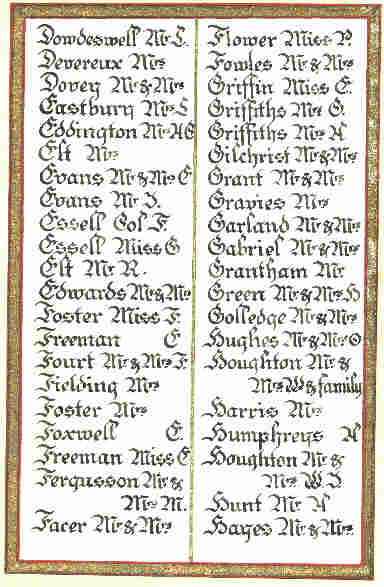 Dowdeswell Mr C.
Devereux Mrs
Dovey Mr & Mrs
Eastbury Mrs C
Eddington Mr A G
Elt Mrs
Evans Mr & Mrs E
Evans Mr J.
Essell Col F.
Essell Miss G
Elt Mr R.
Edwards Mr & Mrs
Foster Miss F.
Freeman E
Fourt Mr & Mrs F.
Fielding Mrs
Foster Mrs
Foxwell E.
Freeman Miss E
Fergusson Mr &
Mrs M.
Facer Mr & Mrs
Flower Miss P.
Fowles Mr & Mrs
Griffin Miss E.
Griffiths Mrs G.
Griffiths Mrs A
Gilchrist Mr & Mrs
Grant Mr & Mrs
Gravies Mrs
Garland Mr & Mrs
Gabriel Mr & Mrs
Grantham Mr
Green Mr & Mrs H
Golledge Mr & Mrs
Hughes Mr & Mrs O
Houghton Mr &
Mrs W & family
Harris Mrs
Humphreys A
Houghton Mr &
Mrs W J.
Hunt Mr A
Hayes Mr & Mrs.